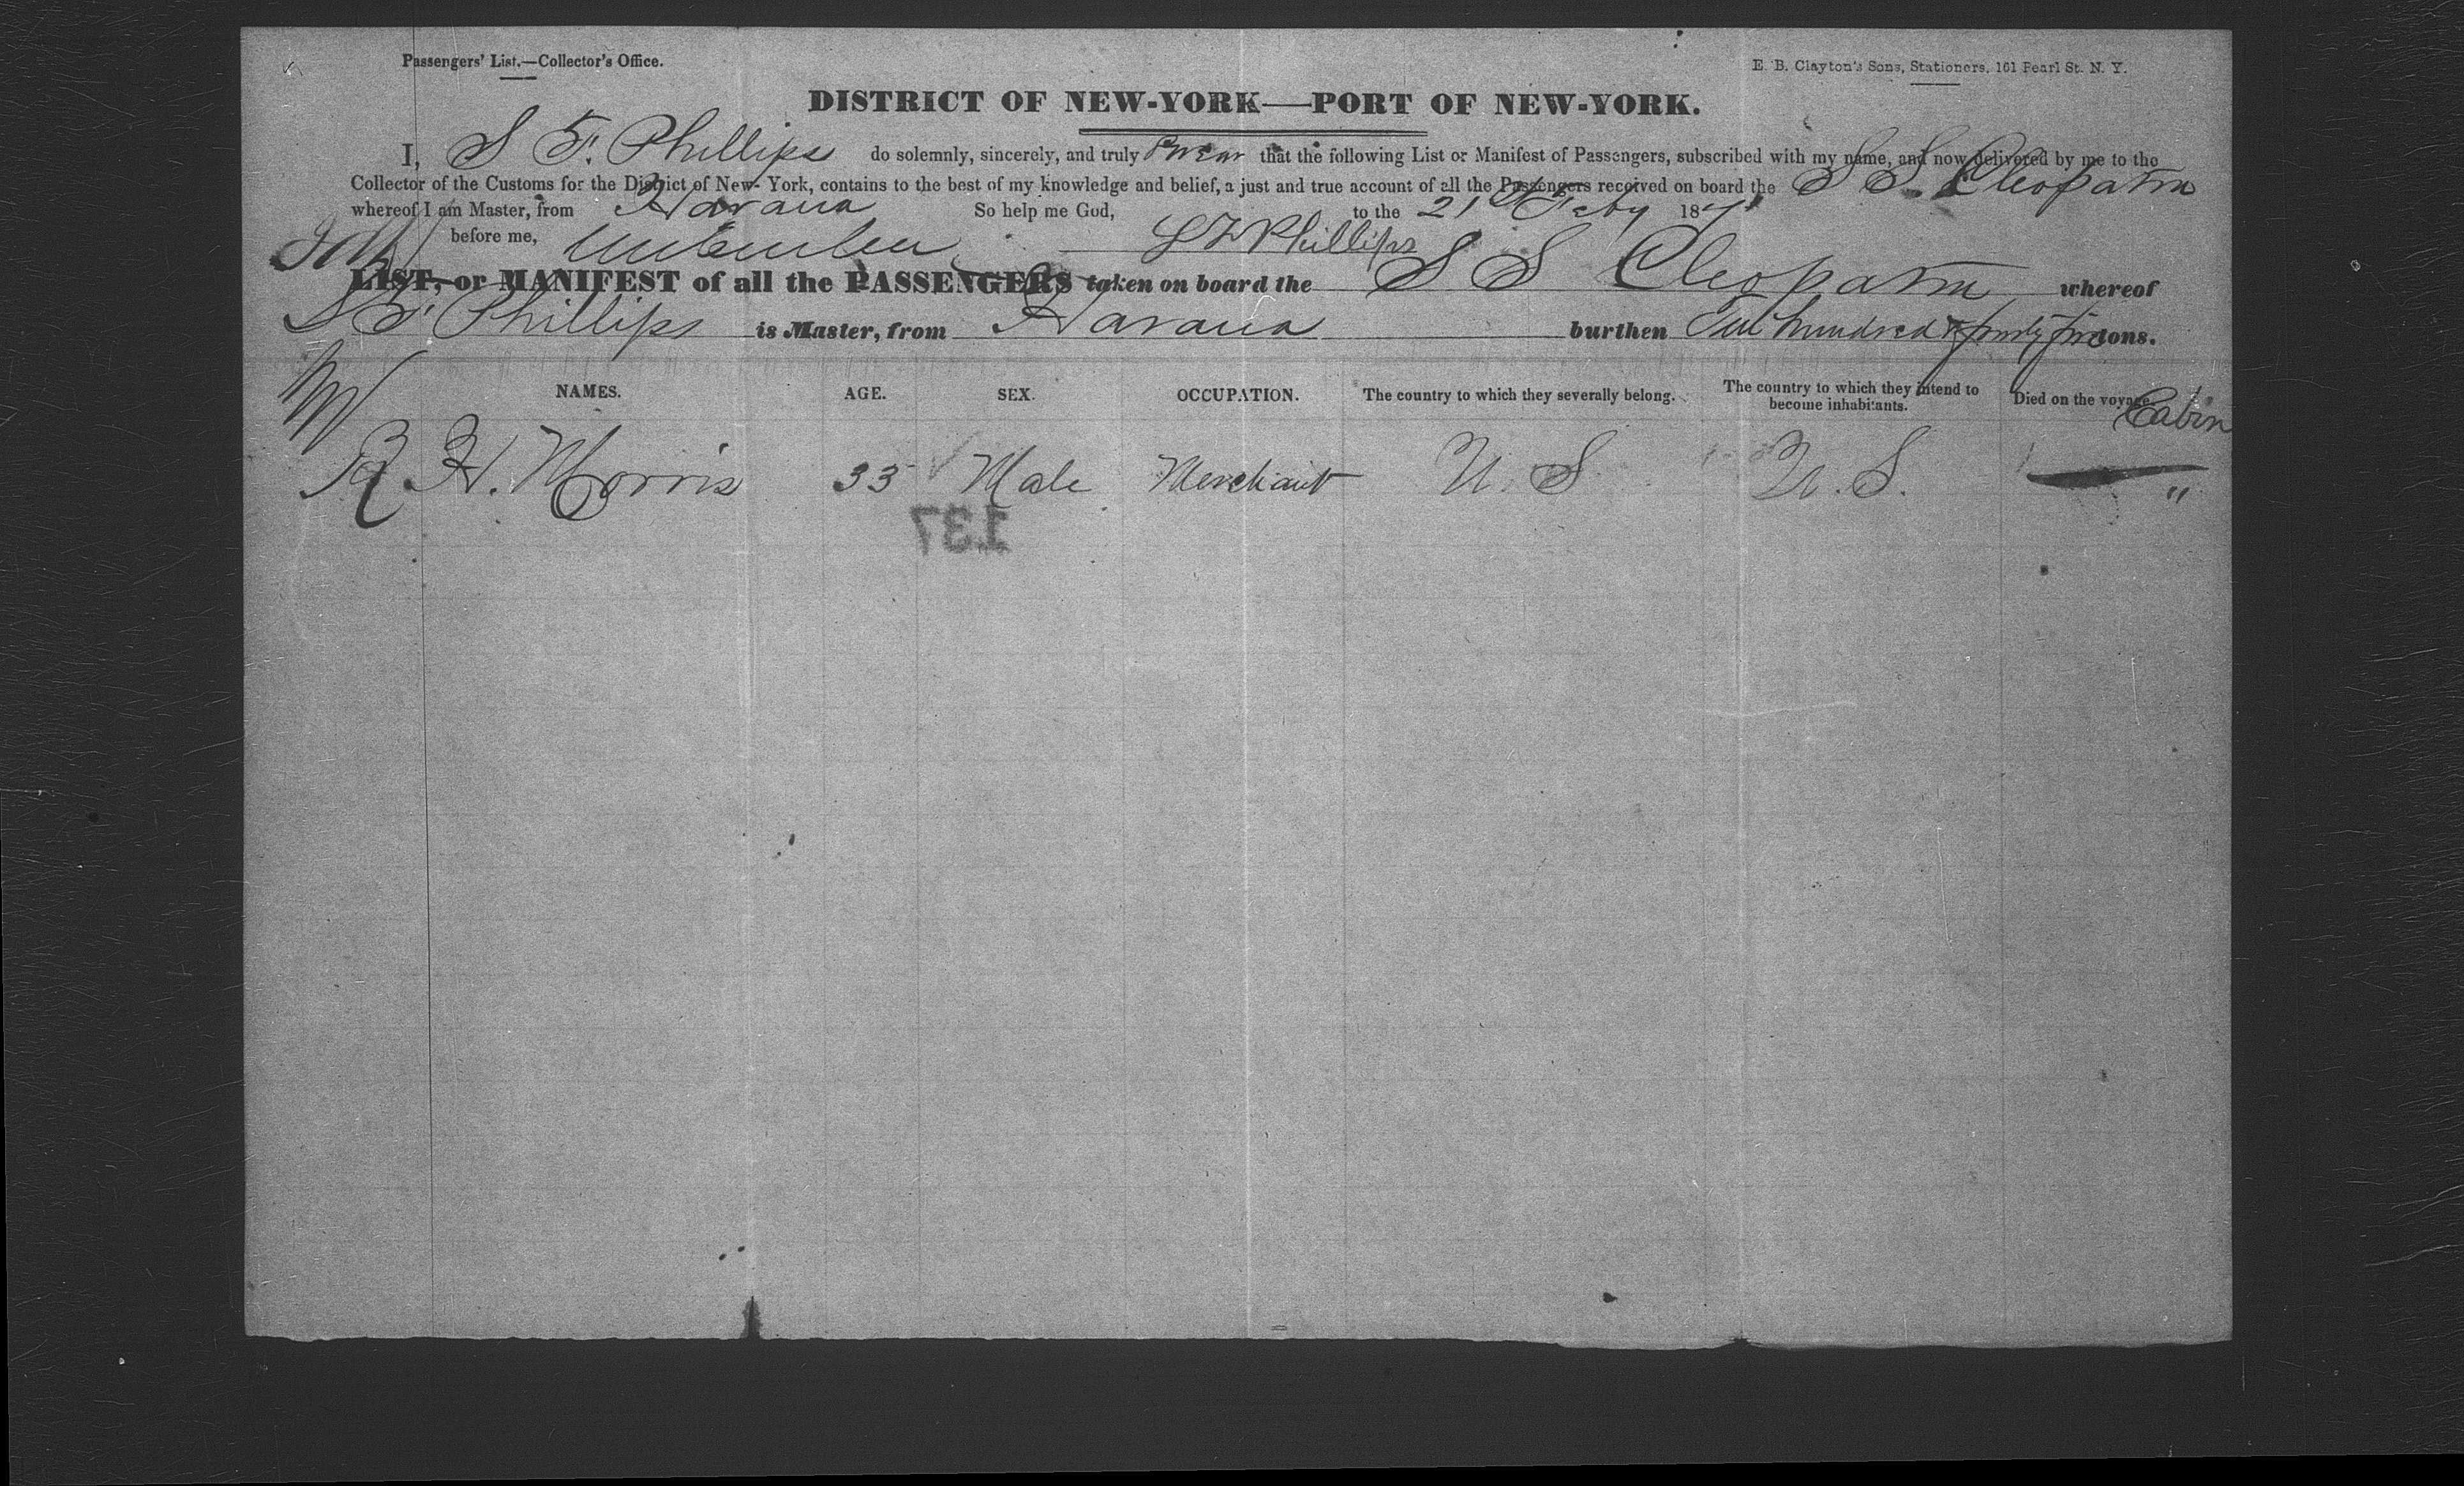 Passengers' List.—Collector's Office.
E. B. Clayton's Sons, Stationers, 161 Pearl St. N. Y.
DISTRICT OF NEW-YORK—PORT OF NEW-YORK.
I, S F. Phillips do solemnly, sincerely, and truly swear that the following List or Manifest of Passengers, subscribed with my name, and now delivered by me to the
Collector of the Customs for the District of New-York, contains to the best of my knowledge and belief, a just and true account of all the Passengers received on board the S S. Cleopatra
whereof I am Master, from Havana So help me God, to the 21st Feby 187
before me, S F Phillips
LIST, or MANIFEST of all the PASSENGERS taken on board the S S Cleopatra whereof
S F. Phillips is Master, from Havana burthen hundred & forty five tons.
NAMES. AGE. SEX. OCCUPATION. The country to which they severally belong. The country to which they intend to become inhabitants. Died on the voyage. Cabin
R. H. Morris 33 Male Merchant U. S U. S. "
137